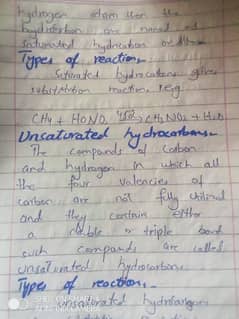 hydrogen atom then the
hydrocarbon are named as
saturated hydrocarbon or
Types of reaction,
Saturated hydrocarbons gives
substitution reaction, e.g
CH4 + HONO2 450°C CH3NO2 + H2O
Unsaturated hydrocarbons,
The compounds of carbon
and hydrogen in which all
the four valencies of
carbon are not fully utilized
and they contain either
a double or triple bond
such compounds are called
unsaturated hydrocarbon,
Types of reaction,
unsaturated hydrocarbons
SHOT ON